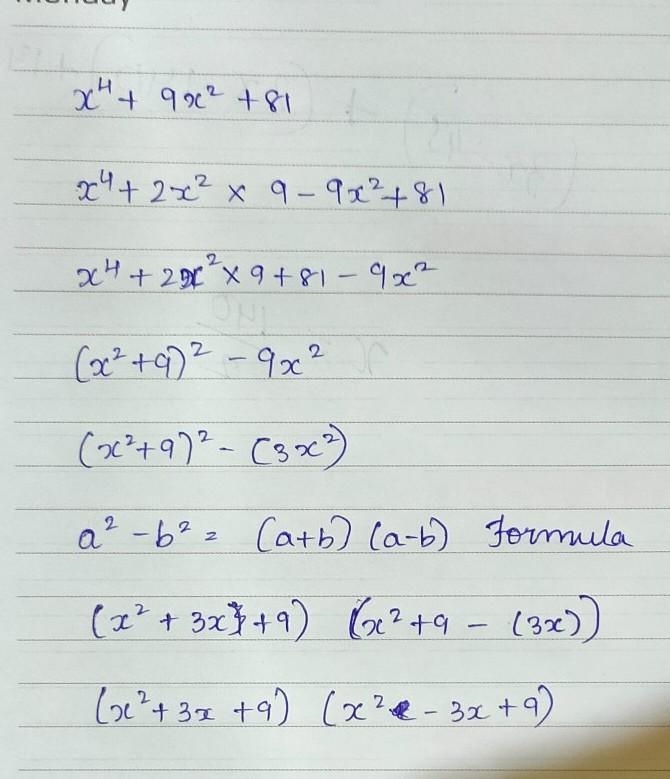 x⁴ + 9x² + 81
x⁴ + 2x² × 9 - 9x² + 81
x⁴ + 2x² × 9 + 81 - 9x²
(x² + 9)² - 9x²
(x² + 9)² - (3x²)
a² - b² = (a+b) (a-b) Formula
(x² + 3x + 9) (x² + 9 - (3x))
(x² + 3x + 9) (x² - 3x + 9)